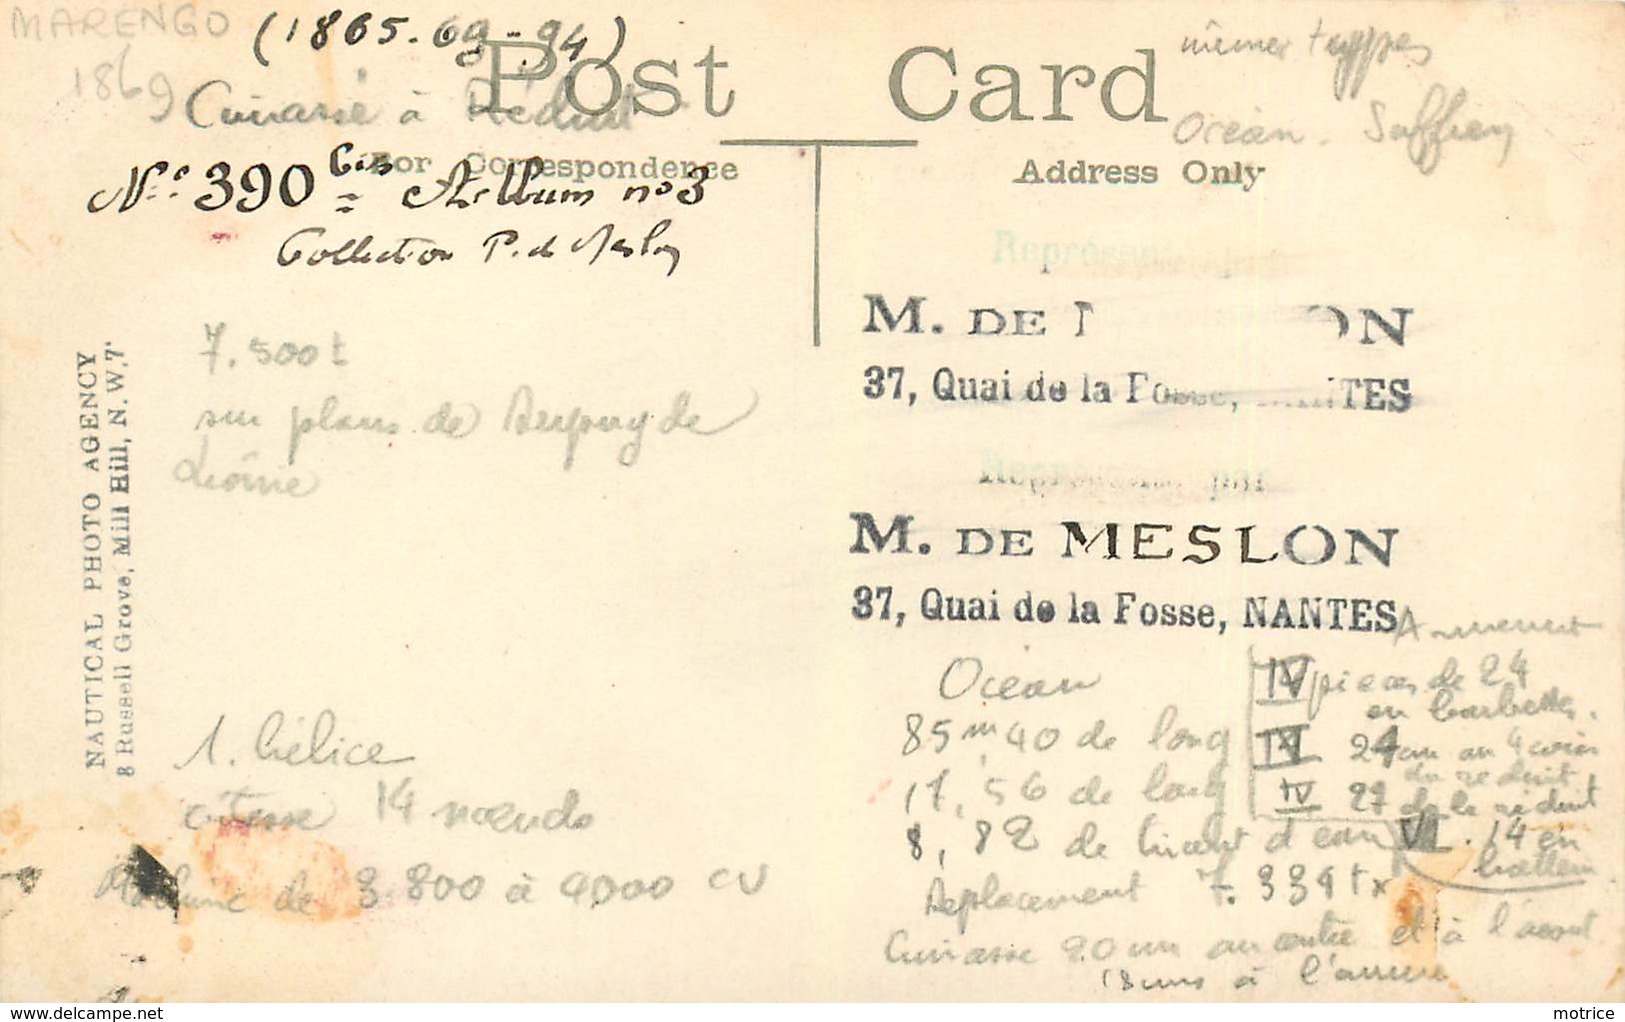 MARENGO (1865-69-94)
1869
Cuirassé à Réduit
Post Card
mêmes types
Océan. Suffren
For Correspondence
Address Only
N° 390 bis = Album n° 3
Collection P. de Meslon
Représenté par
M. DE M ON
37, Quai de la Fosse, NANTES
7.500t
sur plans de Dupuy de
Lôme
NAUTICAL PHOTO AGENCY
8 Russell Grove, Mill Hill, N.W,7
Représenté par
M. DE MESLON
37, Quai de la Fosse, NANTES
1. hélice
vitesse 14 nœuds
Machine de 3 800 à 4000 CV
Océan
85m,40 de long
17,56 de long
8,82 de tirant d'eau
Déplacement 7.334tx
Cuirasse 20 cm au centre et à l'avant
18 cms à l'arrière
Armement
IV pièces de 24
en barbettes.
IV 24 cm au 4 coins
du réduit
IV 27 de le réduit
VI. 14 en
batterie
delcampe.net
motrice